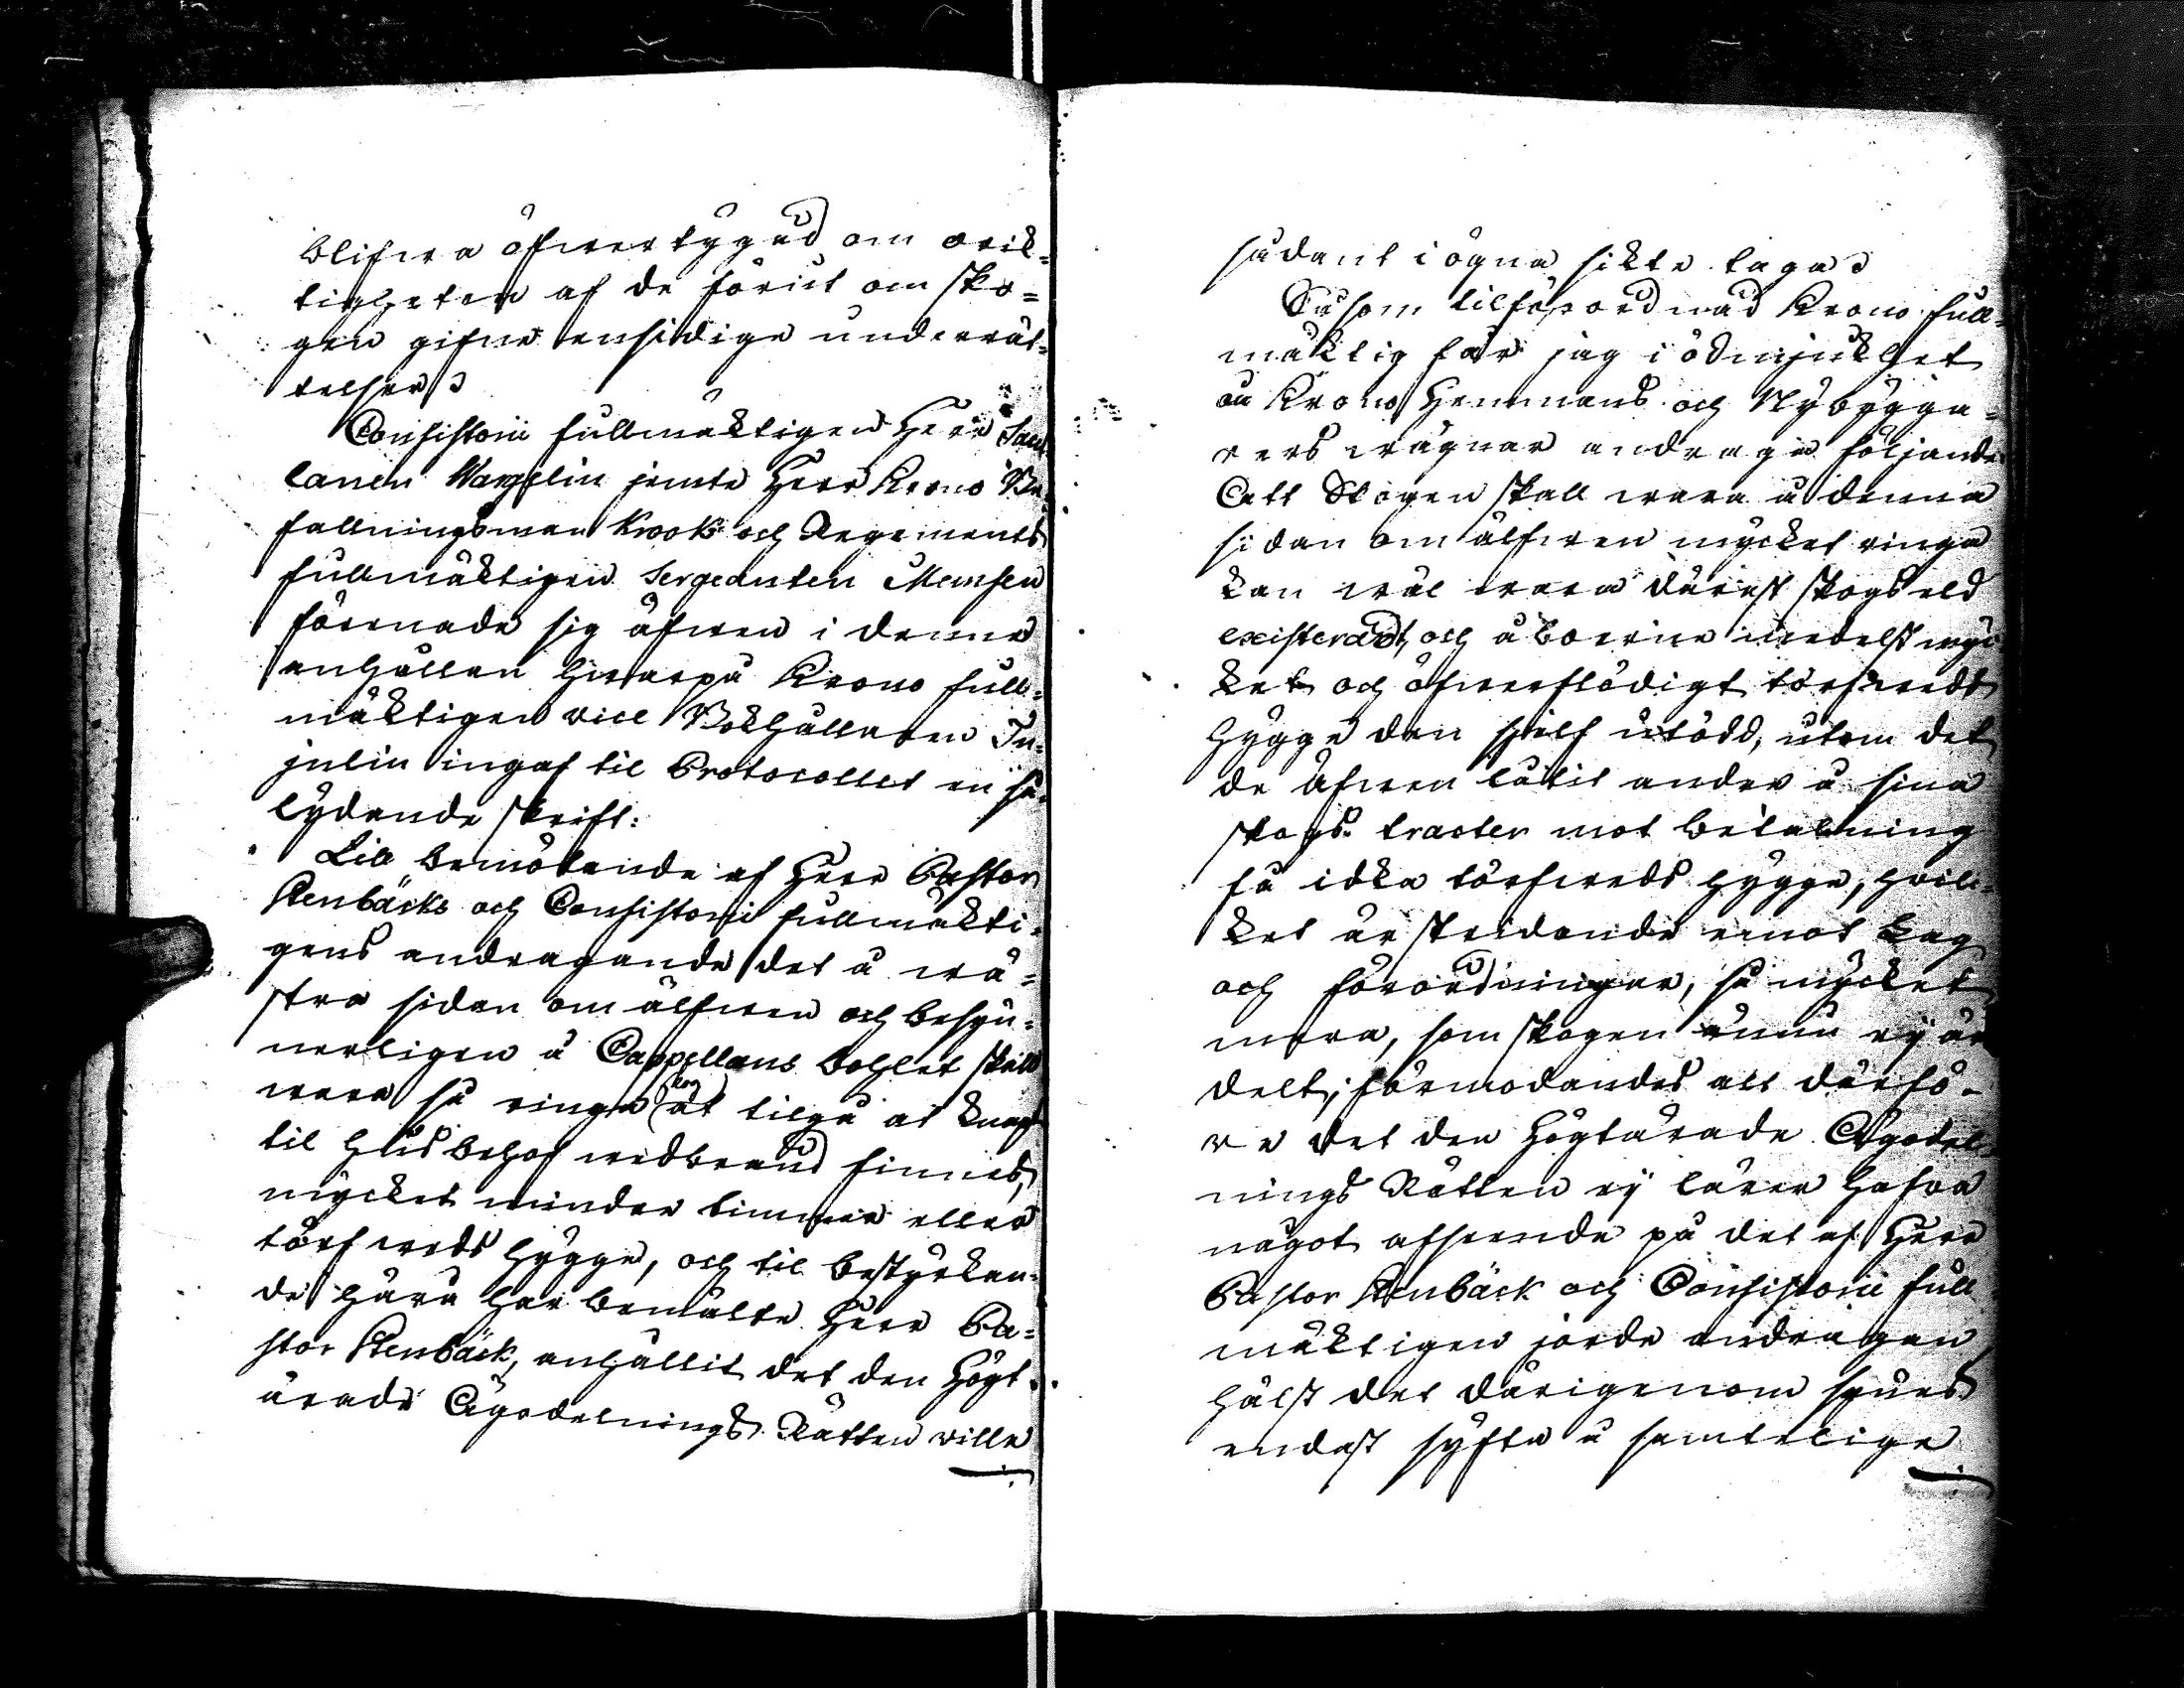 blifwa öfwertygad om orik-
tigheten af de förut om sko-
gen gifne ensidige underrät-
telser.
Consistorii fullmäktigen Herr
Wargelin jemte Herr Krono Be-
fallningsman Krook och Regements
fullmäktigen Sergeanten Memsen
förenade sig äfwen i denna
anhållan hwarpå Krono full-
mäktigen vice Bokhållaren Ju-
julin ingaf til Protocollet en så
lydande skrift:
Till bemötande af Herr Pastor
Stenbäcks och Consistorii fullmäkti-
gens andragande det å wä-
stra sidan om älfwen och besyn-
nerligen å Cappellans bohlet skall
wara så ringa skog at tilgå at knapt
til husbehof wedbrand finnes,
mycket mindre timmer eller
törfweds hygge, och til bestyrkan-
de häraf har bemälte Herr Pa-
stor Stenbäck, anhållit det den Högt-
ärade Ägodelnings Rätten wille
sådant i ögna sikte taga.
Såsom tilförordnad Krono full-
mäktig får jag i ödmjukhet
å Krono Hemmans och Nybygga-
rers wägnar andraga följande
Att Skogen skall wara å denna
sidan om älfwen mycket ringa
kan wäl wara därest skogseld
existerat, och åboerne medelst myc-
ket och öfwerflödigt törfweds
hygge den sjelf utödt, utom det
de äfwen låtit andra å sina
skogs tracter mot betalning
få idka törfweds hygge, hwil-
ket är stridande emot Lag
och förordningar, så mycket
mera, som skogen ännu ej är
delt; förmodandes alt därfö-
re det den Högtärade Ägodel-
nings Rätten ej lärer hafwa
något afseende på det af Herr
Pastor Stenbäck och Consistorii full
mäktigen gjorde andragan
hälst det därigenom synes
endast syfta å samtelige